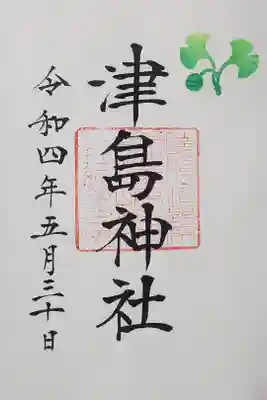 津島神社
令和四年五月三十日